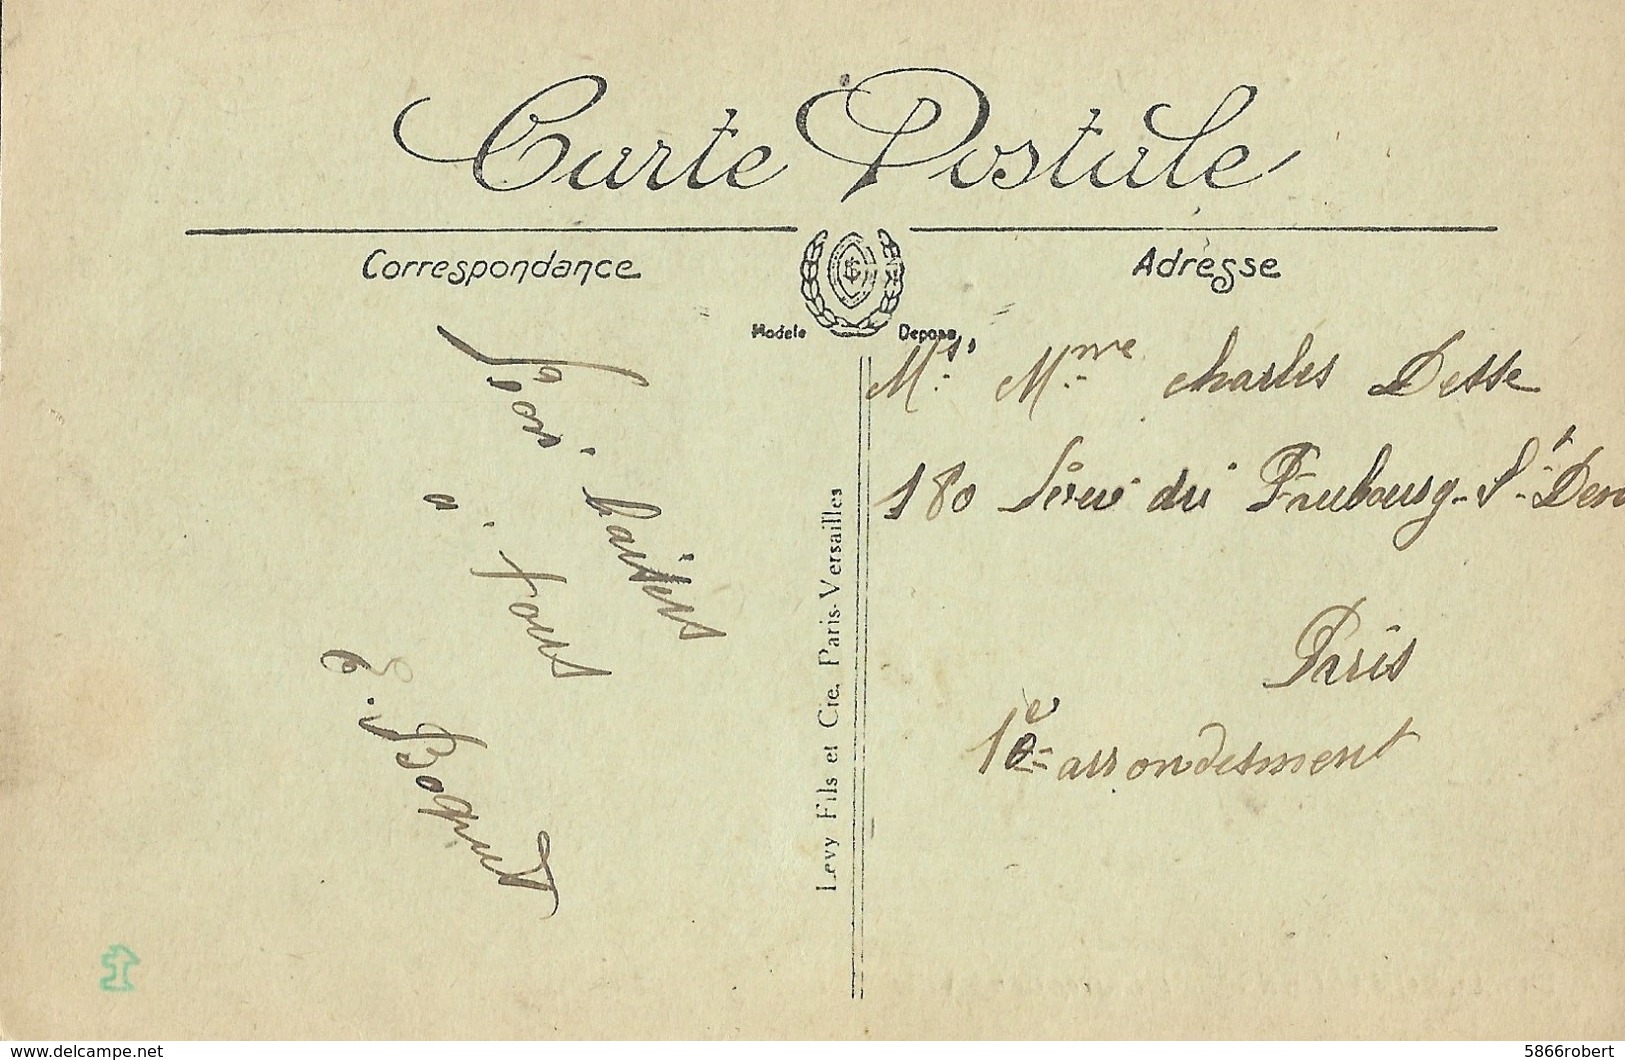 Carte Postale
Correspondance
Adresse
Modèle Déposé
Bon. baisers
a. tous
E. Boquet
Levy Fils et Cie, Paris-Versailles
Mr. Mme charles Desse
180 du Faubourg-St-Den
Paris
10e arrondesment
delcampe.net
5866robert